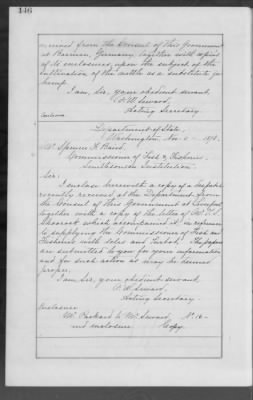 146
received from the Consul of this Government
at Barmen, Germany, together with copies
of its enclosures, upon the subject of the
cultivation of the nettle as a substitute for
hemp.
I am, Sir, your obedient servant,
F. W. Seward,
Acting Secretary.
Enclosure
Department of State,
Washington, Nov. 1878.
Spencer F. Baird,
Commissioner of Fish & Fisheries,
Smithsonian Institution.
Sir:
I enclose herewith a copy of a despatch
recently received at the Department from
the Consul of this Government at Liverpool
together with a copy of the letter of
which accompanied it, in reference
to supplying the Commissioner of Fish and
Fisheries with soles and turbot. The papers
are submitted to you for your information
and for such action as may be deemed
proper.
I am, Sir, your obedient servant,
F. W. Seward,
Acting Secretary
Enclosure
Mr. Packard to Mr. Seward, No. 16
and enclosure. Copy.